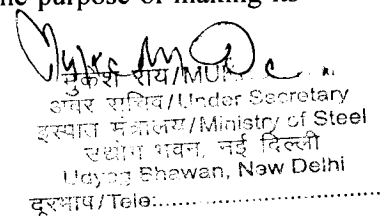 the purpose of making its
मुकेश राय/MUK
अवर सचिव/Under Secretary
इस्पात मंत्रालय/Ministry of Steel
उद्योग भवन, नई दिल्ली
Udyog Bhawan, New Delhi
दूरभाष/Tele:..............................